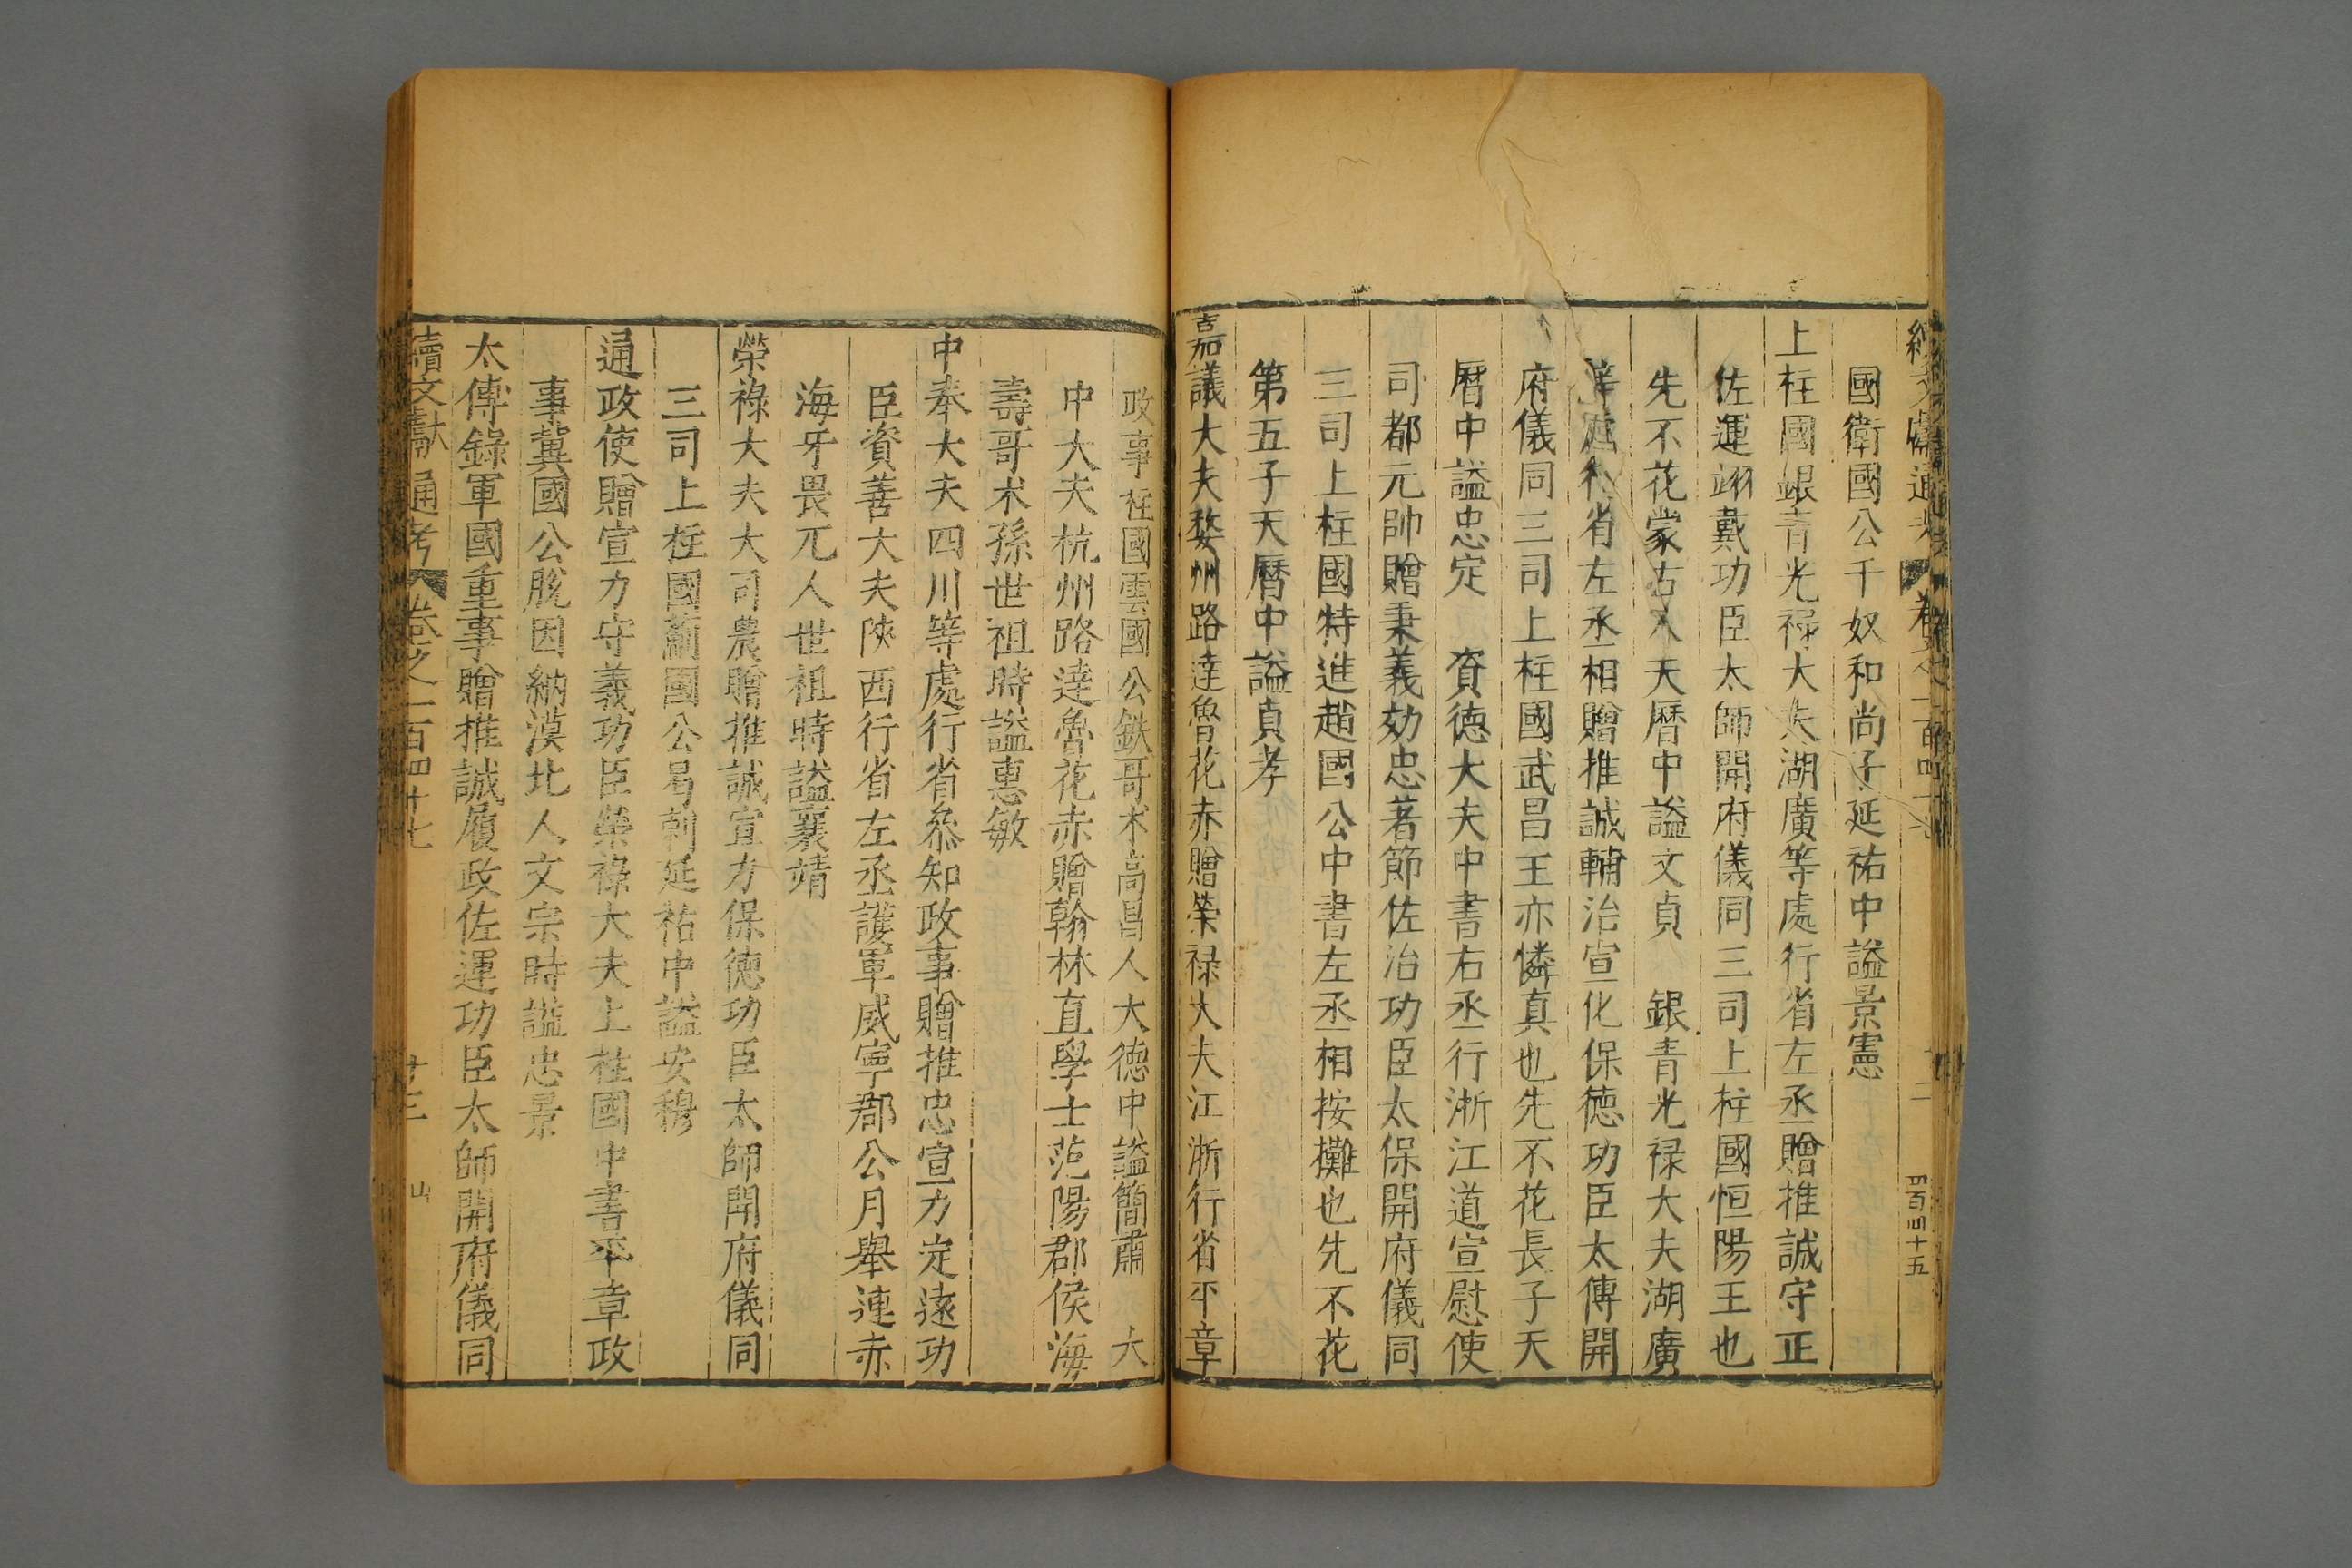 國衛國公千奴和尚子延祐中謚景憲
上柱國銀青光禄大夫湖廣等處行省左丞贈推誠守正
佐運翊戴功臣太師開府儀同三司上柱國恒陽王也
先不花蒙古人天曆中謚文貞 銀青光禄大夫湖廣
等處行省左丞相贈推誠輔治宣化保德功臣太傅開
府儀同三司上柱國武昌王亦憐真也先不花長子天
曆中謚忠定 資德大夫中書右丞行浙江道宣慰使
司都元帥贈秉義効忠著節佐治功臣太保開府儀同
三司上柱國特進趙國公中書左丞相按攤也先不花
第五子天曆中謚貞孝
嘉議大夫婺州路達魯花赤贈榮禄大夫江浙行省平章
政事柱國雲國公鉄哥术高昌人大德中謚簡肅 大
中大夫杭州路達魯花赤贈翰林直學士范陽郡侯海
壽哥术孫世祖時謚惠敏
中奉大夫四川等處行省叅知政事贈推忠宣力定遠功
臣資善大夫陝西行省左丞護軍威寧郡公月舉連赤
海牙畏兀人世祖時謚襄靖
榮祿大夫大司農贈推誠宣力保德功臣太師開府儀同
三司上柱國薊國公曷剌延祐中謚安穆
通政使贈宣力守義功臣榮祿大夫上柱國中書平章政
事冀國公脫因納漠北人文宗時謚忠景
太傅錄軍國重事贈推誠履政佐運功臣太師開府儀同
續文獻通考 卷之一百四十七 廿三 山